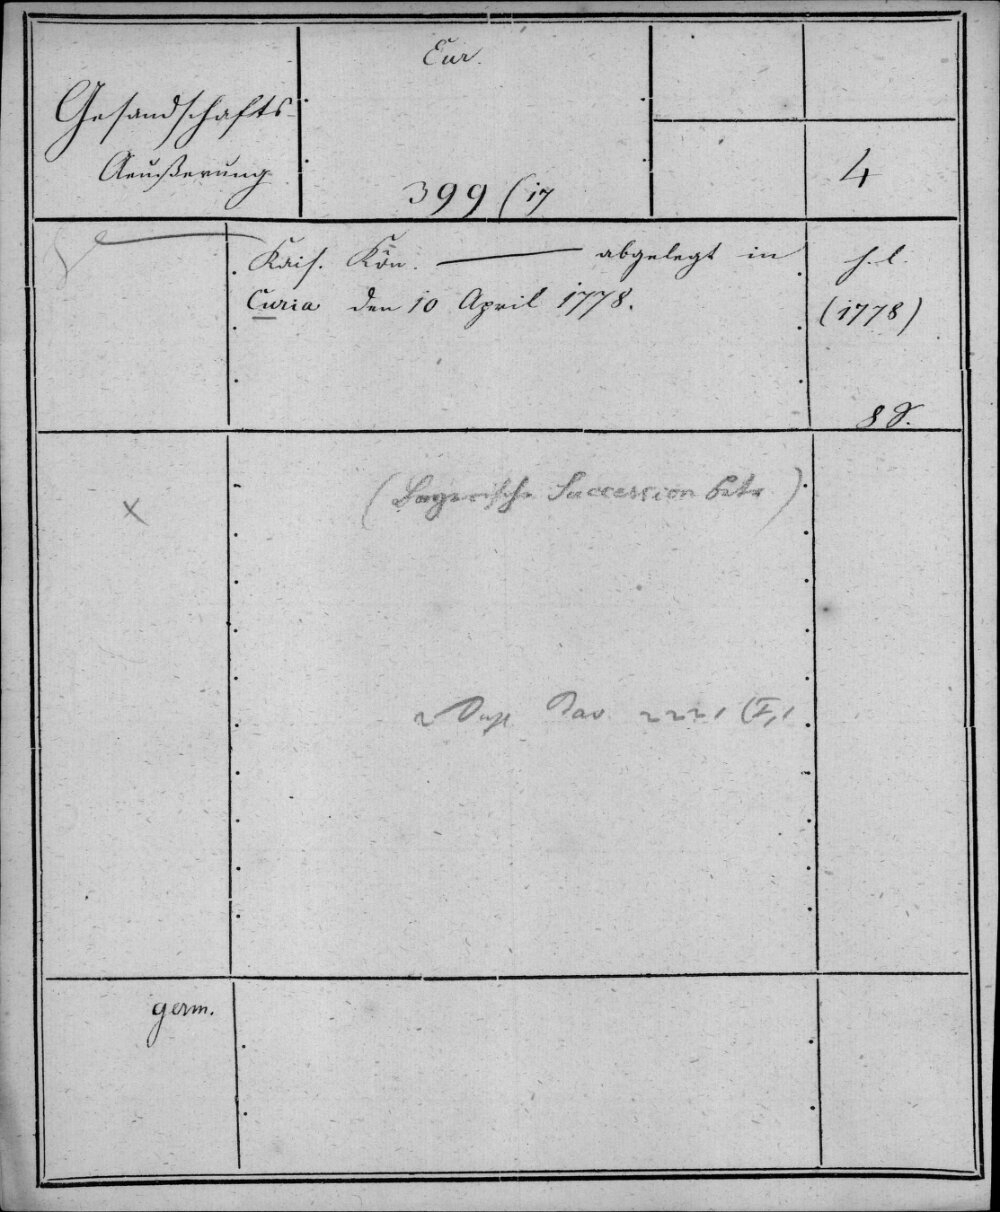 Gesandschafts-
Aeußerung
Eur.
399 (17
4
Kais. Kön. ——— abgelegt in
Curia den 10 April 1778.
h. l.
(1778)
8 S.
(Bayerische Succession betr.)
x
Bav. 2221 (I,1
germ.